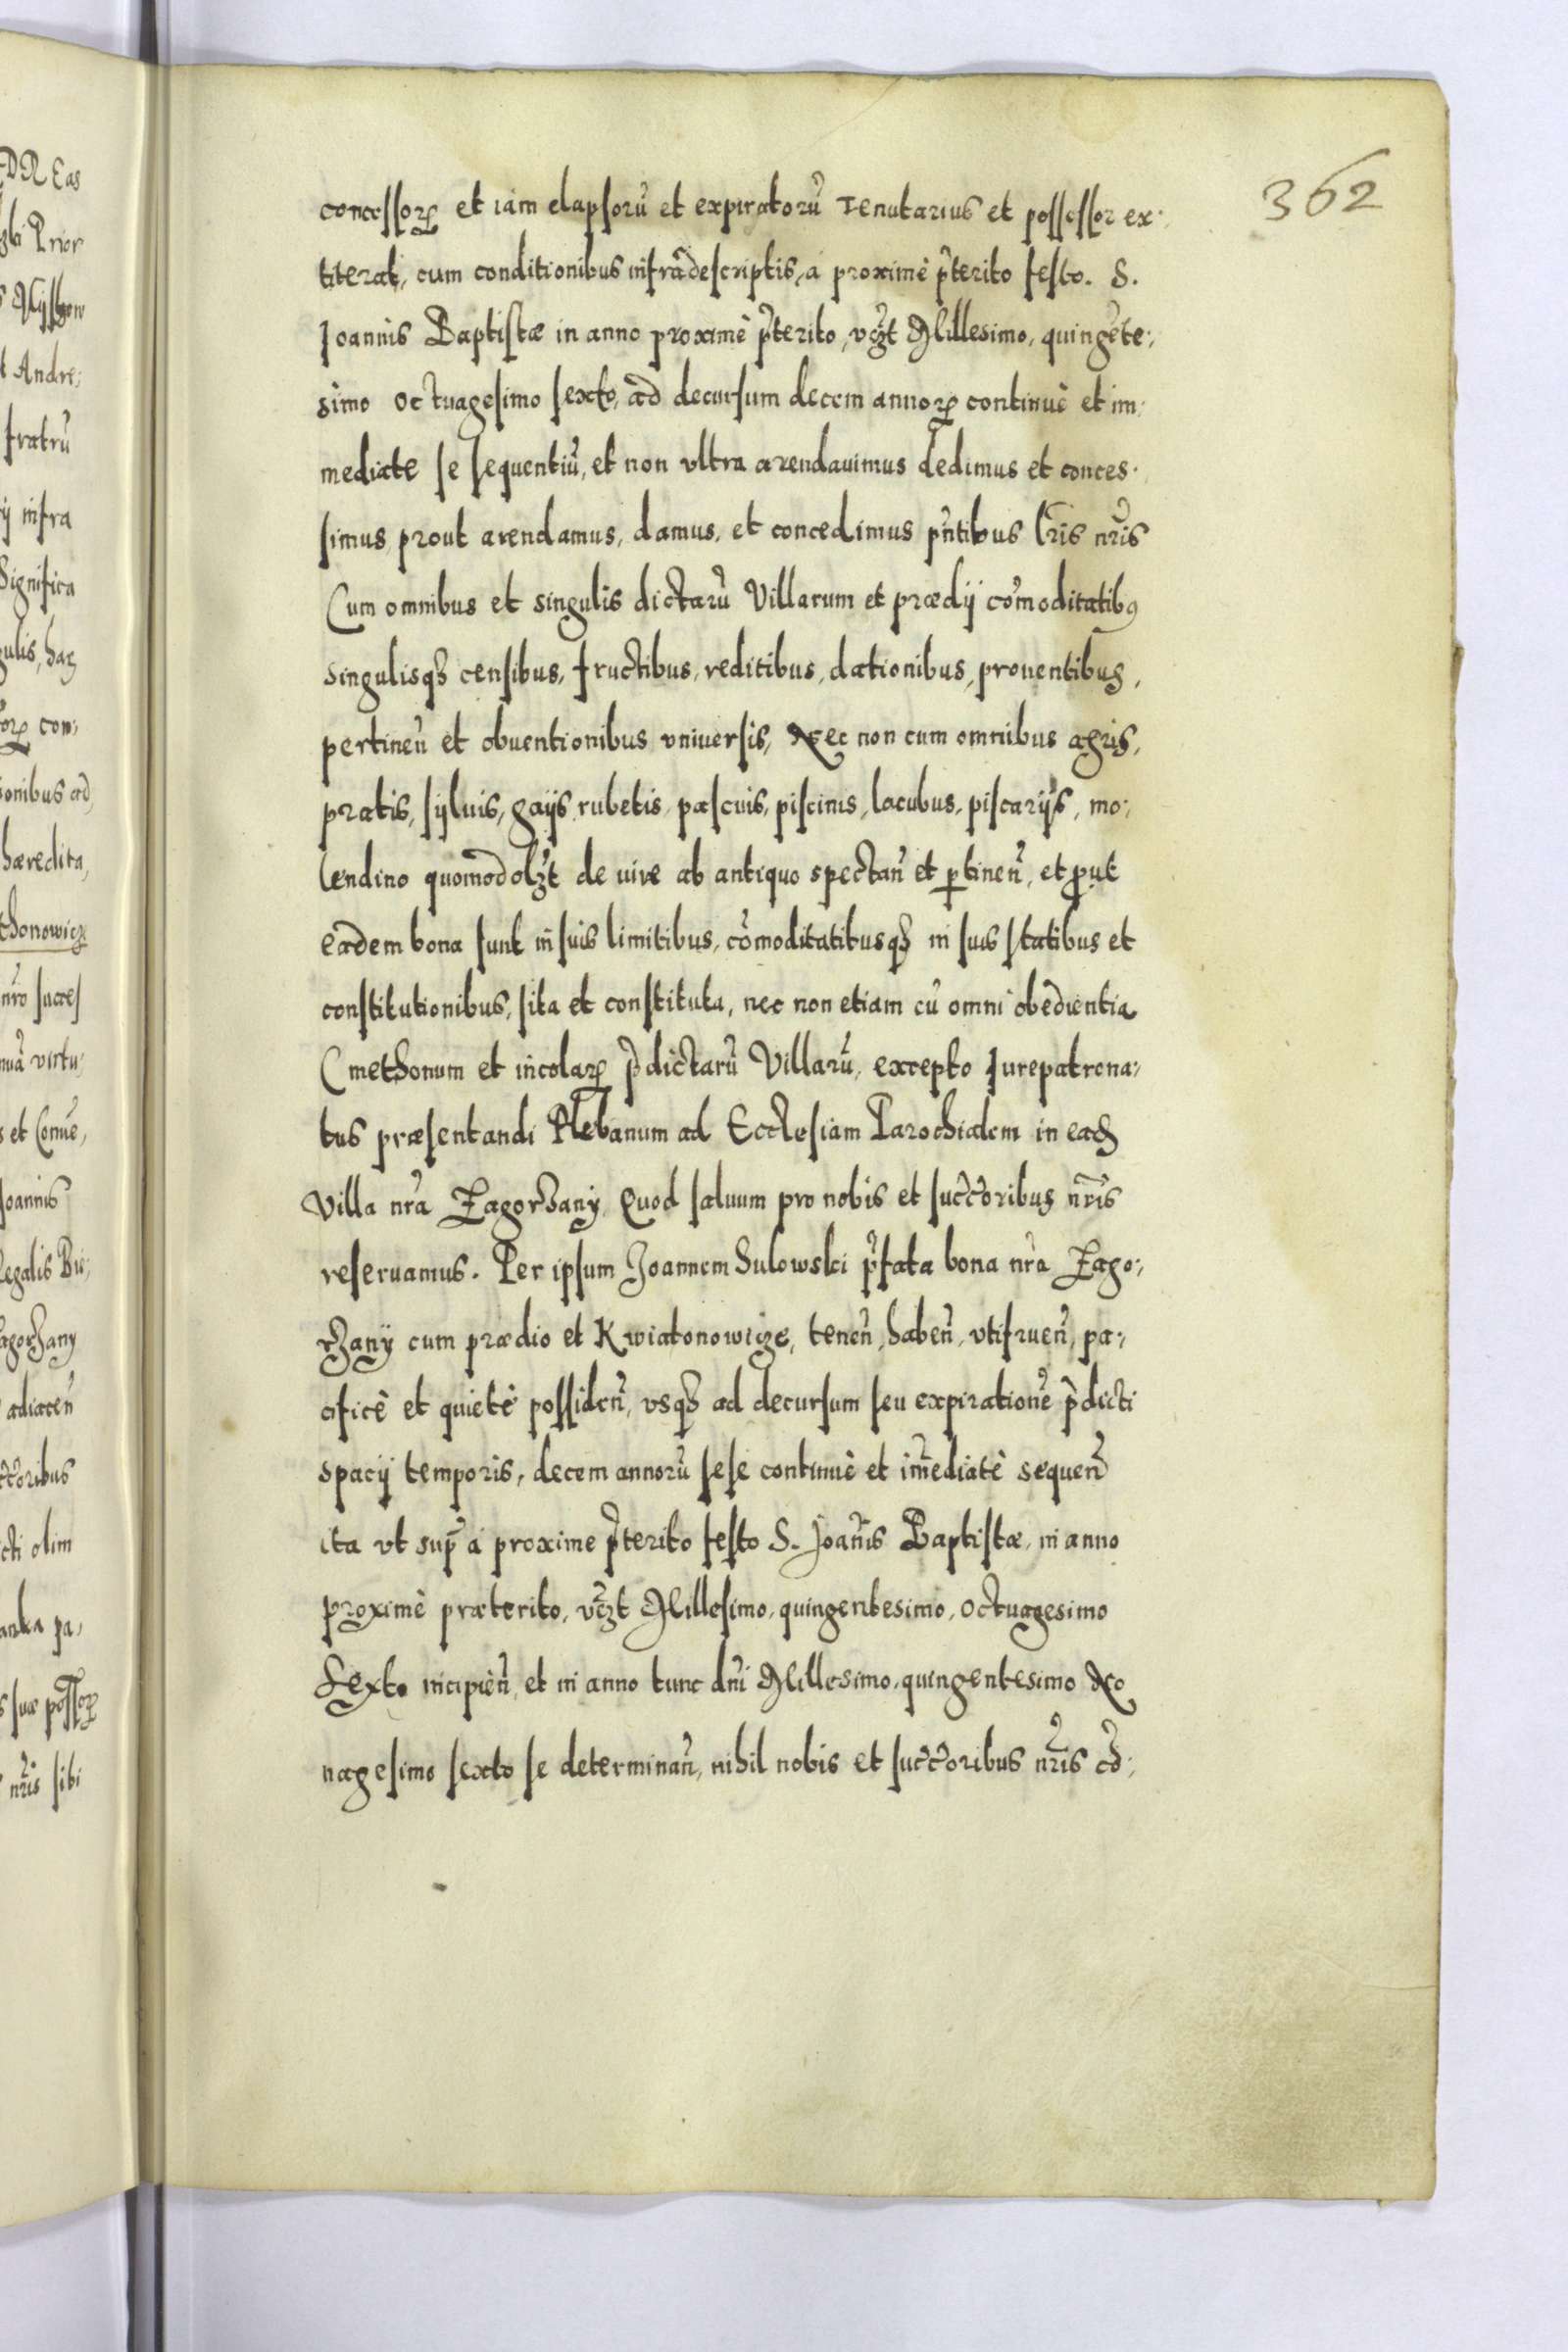 362
concessorꝝ et iam elapsorū et expiratorū Tenutarius et possessor ex:
titerat, cum conditionibus infrà descriptis, a proximè p̃terito festo. S.
Joannis Baptistæ in anno proximè p̃terito, vcz̃t Millesimo, quingẽte:
simo octuagesimo sexto, ad decursum decem annorꝝ continuè et im:
mediate se sequentiũ, et non vltra arendauimus dedimus et conces:
simus prout arendamus, damus, et concedimus pñtibus Lr̃is nr̃is
Cum omnibus et singulis dictarũ Villarum et prædij cõmoditatibꝰ
singulisqȝ censibus, fructibus, reditibus, dationibus, prouentibus,
pertineñ et obuentionibus vniuersis, Nec non cum omnibus agris,
pratis, syluis, gaijs, rubetis, pascuis, piscinis, lacubus, piscarijs, mo:
lendino quomodolz̃t de iure ab antiquo spectañ et ꝑtineñ, et ꝓut
eadem bona sunt in suis limitibus, cõmoditatibusqȝ in suis statibus et
constitutionibus, sita et constituta, nec non etiam cũ omni obedientia
Cmethonum et incolarꝝ p̃dictarũ Villarũ, excepto Jurepatrona:
tus præsentandi Plebanum ad Ecclesiam Parochialem in eadȝ
Villa nr̃a Zagorzany, Quod saluum pro nobis et succ̃oribus nr̃is
reseruamus. Per ipsum Joannem Sulowski p̃fata bona nr̃a Zago:
rzany cum prædio et Kwiatonowicze, teneñ, habeñ, vtifrueñ, pa:
cificè et quietè possideñ, vsqȝ ad decursum seu expirationẽ p̃dicti
spacij temporis, decem annorũ sese continuè et im̃ediatè sequeñ
ita vt sup̃ a proxime p̃terito festo S. Joañis Baptistæ, in anno
proximè præterito, vcz̃t Millesimo, quingentesimo, octuagesimo
Sexto incipieñ, et in anno tunc dñi Millesimo, quingentesimo No
nagesimo sexto se determinañ, nihil nobis et succ̃oribus nr̃is